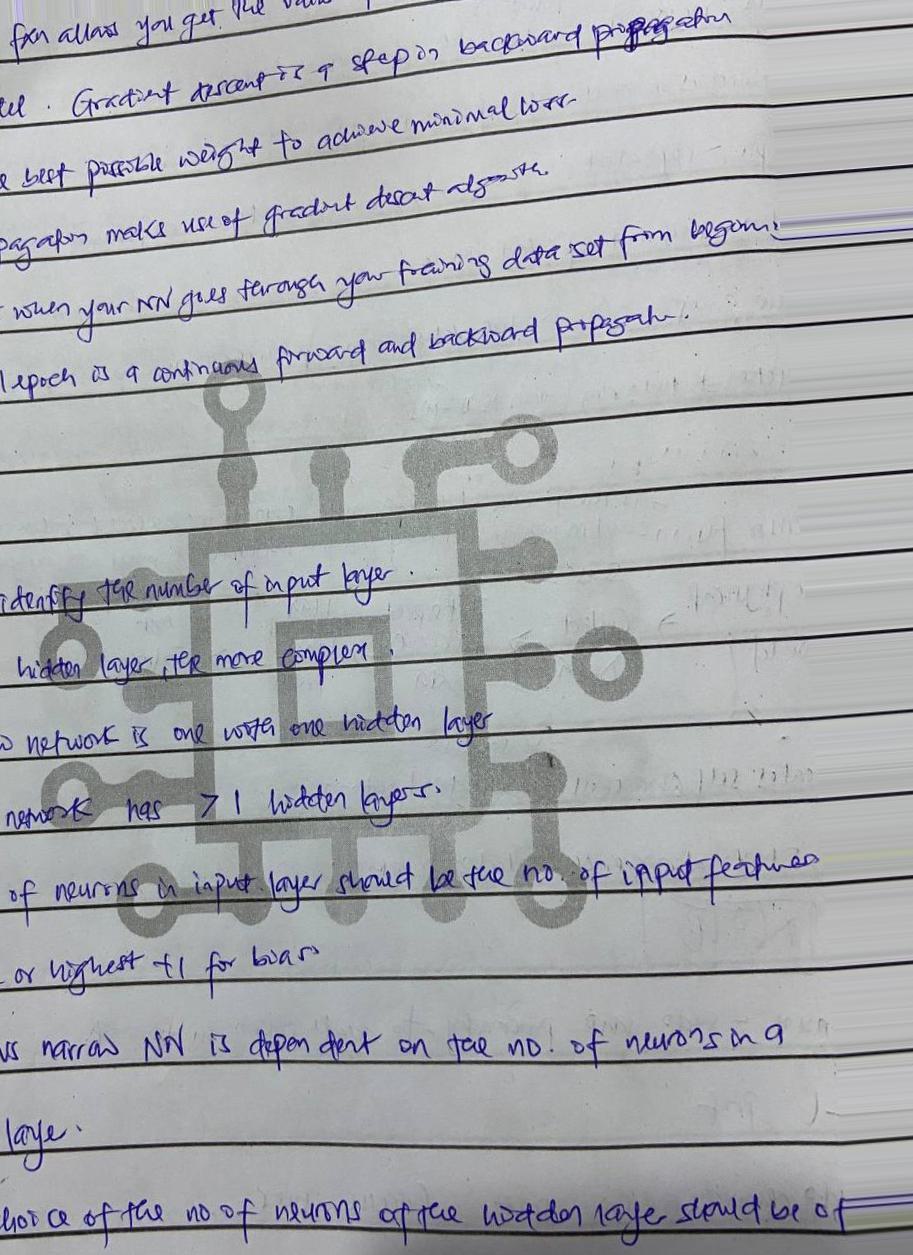 fxn allows you get the
. Gradient descent is a step in backward propagation
best possible weight to achieve minimal loss
makes use of gradient descent
when your NN goes through your training data set from
epoch is a continuous forward and backward
identify the number of input layer.
hidden layer, the more complex.
network is one with one hidden layer
network has > 1 hidden layers.
of neurons in input layer should be the no. of input features
or highest +1 for bias
vs narrow NN is dependent on the no. of neurons in a
laye.
of the no of neurons of the hidden laye should be of